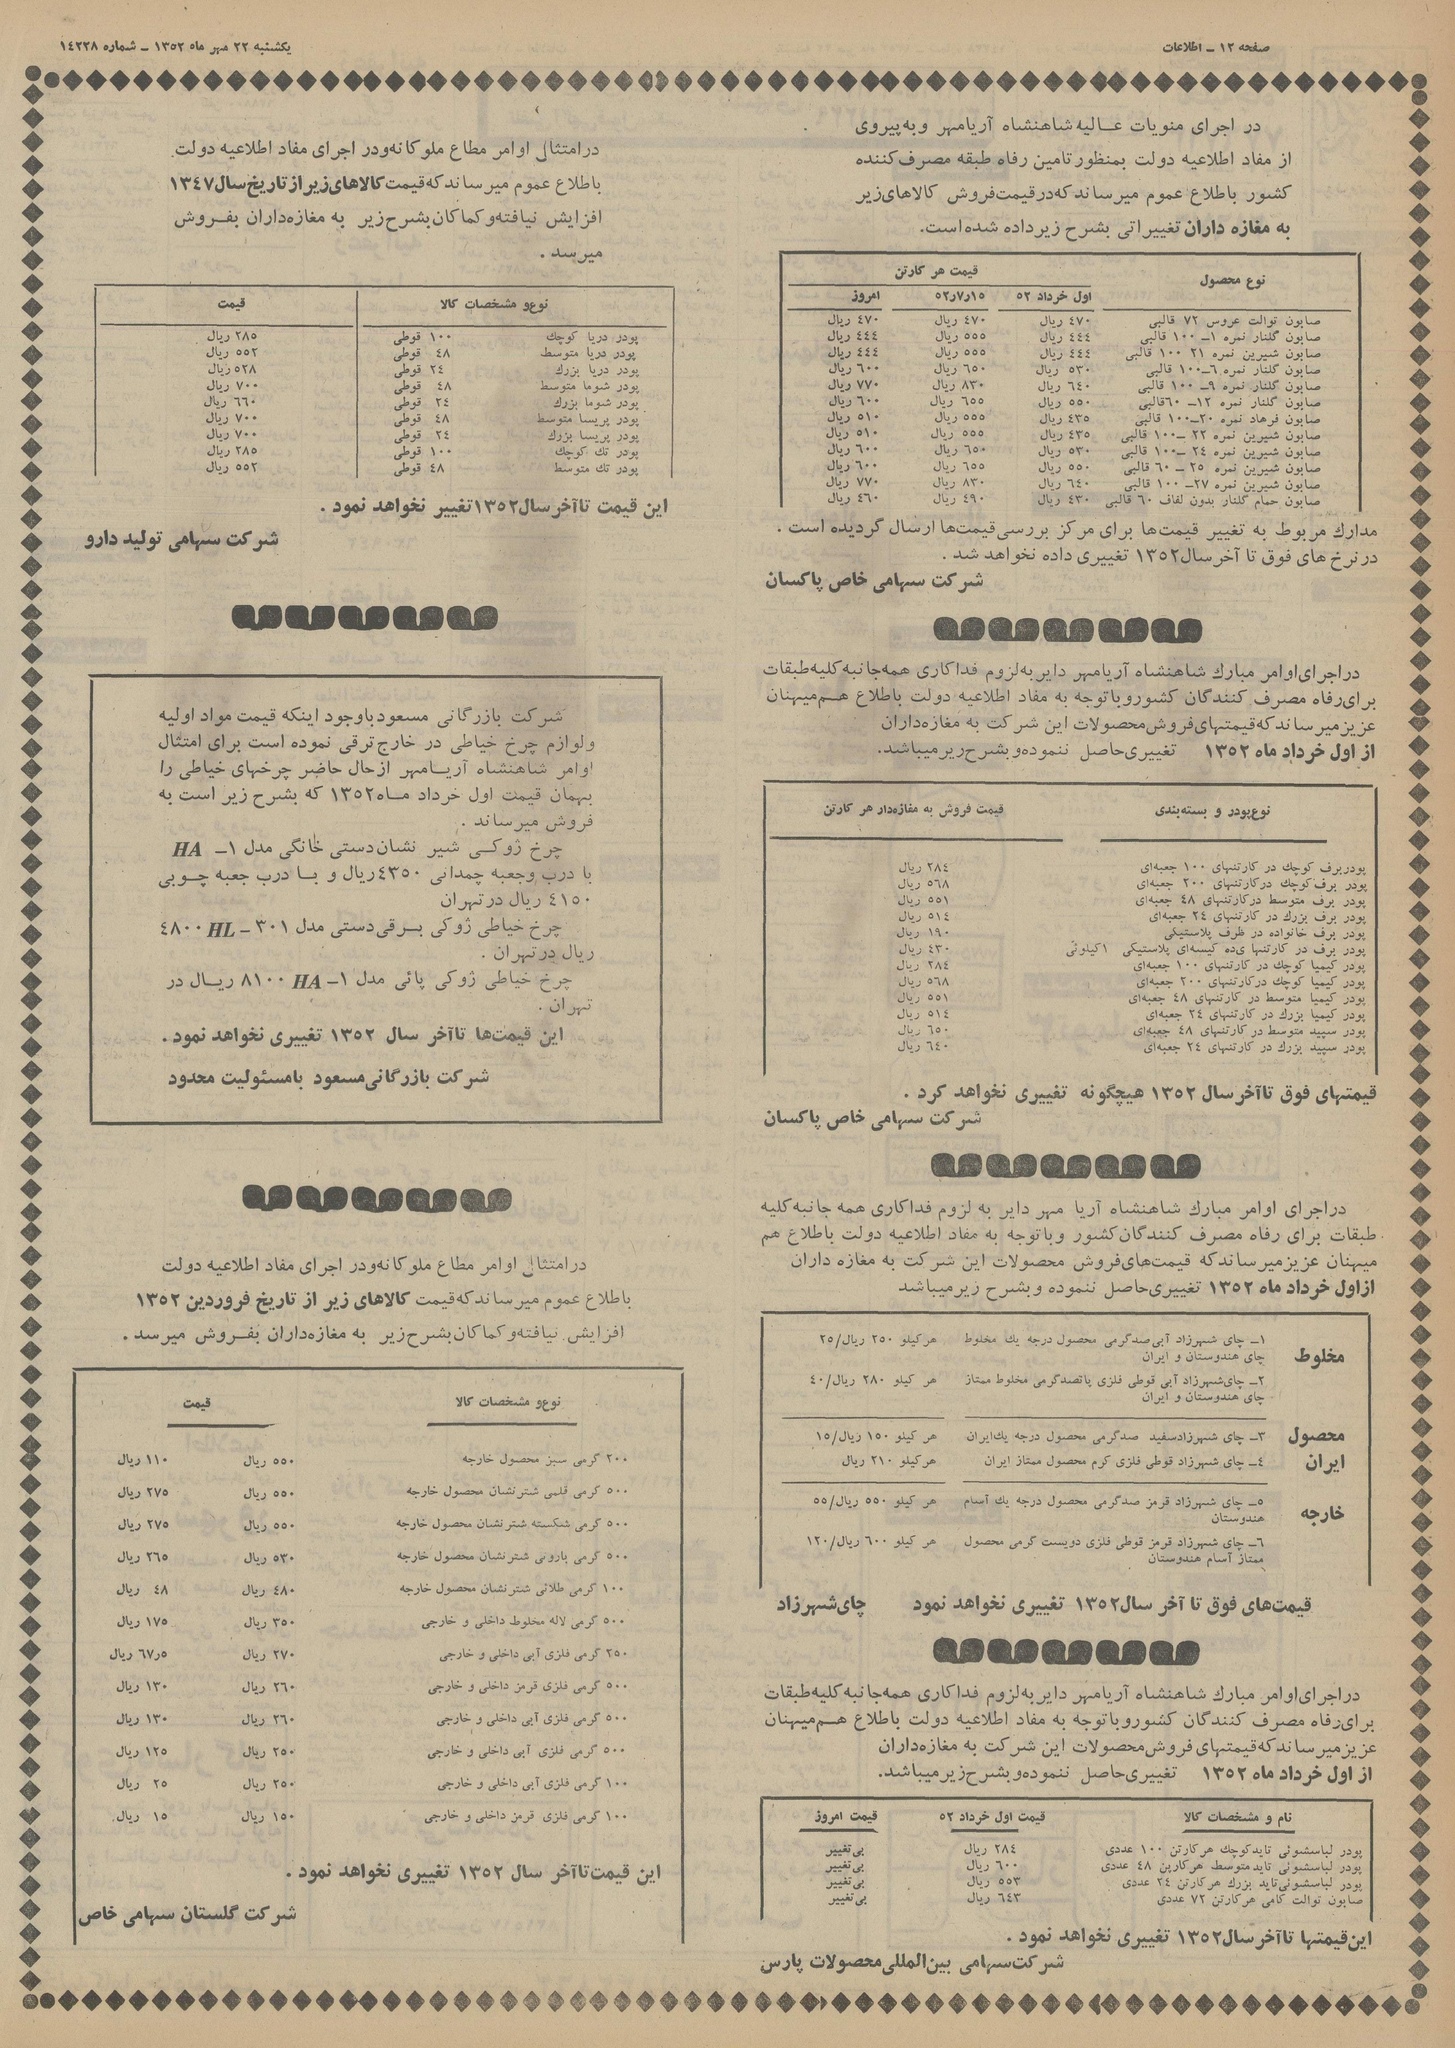 صفحه ۱۲ ــ اطلاعات
یکشنبه ۲۲ مهر ماه ۱۳۵۲ ــ شماره ۱٤۲۲۸
در اجرای منویات عـالیه شاهنشاه آریامهر و به پیروی
از مفاد اطلاعیه دولت بمنظور تامین رفاه طبقه مصرف کننده
کشور باطلاع عموم میرساند که در قیمت فروش کالاهای زیر
به مغازه داران تغییراتی بشرح زیر داده شده است.
نوع محصول قیمت هر کارتن
اول خرداد ۵۲ ۵۲٫۷٫۱۵ امروز
صابون توالت عروس ۷۲ قالبی ٤۷۰ ریال ٤۷۰ ریال ٤۷۰ ریال
صابون گلنار نمره ۱ــ ۱۰۰ قالبی ٤٤٤ ریال ۵۵۵ ریال ٤٤٤ ریال
صابون شیرین نمره ۲۱ ۱۰۰ قالبی ٤٤٤ ریال ۵۵۵ ریال ٤٤٤ ریال
صابون گلنار نمره ٦ــ۱۰۰ قالبی ۵۳۰ ریال ٦۵۰ ریال ٦۰۰ ریال
صابون گلنار نمره ۹ــ ۱۰۰ قالبی ٦٤۰ ریال ۸۳۰ ریال ۷۷۰ ریال
صابون گلنار نمره ۱۲ــ ٦۰قالبی ۵۵۰ ریال ٦۵۵ ریال ٦۰۰ ریال
صابون فرهاد نمره ۲۰ــ۱۰۰ قالبی ٤۳۵ ریال ۵۵۵ ریال ۵۱۰ ریال
صابون شیرین نمره ۲۲ ــ۱۰۰ قالبی ٤۳۵ ریال ۵۵۵ ریال ۵۱۰ ریال
صابون شیرین نمره ۲٤ ــ۱۰۰ قالبی ۵۳۰ ریال ٦۵۰ ریال ٦۰۰ ریال
صابون شیرین نمره ۲۵ ــ ٦۰ قالبی ۵۵۰ ریال ٦۵۵ ریال ٦۰۰ ریال
صابون شیرین نمره ۲۷ــ ۱۰۰ قالبی ٦٤۰ ریال ۸۳۰ ریال ۷۷۰ ریال
صابون حمام گلنار بدون لفاف ٦۰ قالبی ٤۳۰ ریال ٤۹۰ ریال ٤٦۰ ریال
مدارك مربوط به تغییر قیمت‌ها برای مرکز بررسی قیمت‌ها ارسال گردیده است .
در نرخ های فوق تا آخر سال ۱۳۵۲ تغییری داده نخواهد شد .
شرکت سهامی خاص پاکسان
در اجرای اوامر مبارك شاهنشاه آریامهر دایر به لزوم فداکاری همه جانبه کلیه طبقات
برای رفاه مصرف کنندگان کشور و با توجه به مفاد اطلاعیه دولت باطلاع هـم میهنان
عزیز میرساند که قیمتهای فروش محصولات این شرکت به مغازه داران
از اول خرداد ماه ۱۳۵۲ تغییری حاصل ننموده و بشرح زیر میباشد.
نوع پودر و بسته‌بندی قیمت فروش به مغازه‌دار هر کارتن
پودر برف کوچك در کارتنهای ۱۰۰ جعبه‌ای ۲۸٤ ریال
پودر برف کوچك در کارتنهای ۲۰۰ جعبه‌ای ۵٦۸ ریال
پودر برف متوسط در کارتنهای ٤۸ جعبه‌ای ۵۵۱ ریال
پودر برف بزرك در کارتنهای ۲٤ جعبه‌ای ۵۱٤ ریال
پودر برف خانواده در ظرف پلاستیکی ۱۹۰ ریال
پودر برف در کارتنها ی‌ده کیسه‌ای پلاستیکی ۱کیلوئی ٤۳۰ ریال
پودر کیمیا کوچك در کارتنهای ۱۰۰ جعبه‌ای ۲۸٤ ریال
پودر کیمیا کوچك در کارتنهای ۲۰۰ جعبه‌ای ۵٦۸ ریال
پودر کیمیا متوسط در کارتنهای ٤۸ جعبه‌ای ۵۵۱ ریال
پودر کیمیا بزرك در کارتنهای ۲٤ جعبه‌ای ۵۱٤ ریال
پودر سپید متوسط در کارتنهای ٤۸ جعبه‌ای ٦۵۰ ریال
پودر سپید بزرك در کارتنهای ۲٤ جعبه‌ای ٦٤۰ ریال
قیمتهای فوق تا آخر سال ۱۳۵۲ هیچگونه تغییری نخواهد کرد .
شرکت سهامی خاص پاکسان
در اجرای اوامر مبارك شاهنشاه آریا مهر دایر به لزوم فداکاری همه جانبه کلیه
طبقات برای رفاه مصرف کنندگان کشور و با توجه به مفاد اطلاعیه دولت باطلاع هم
میهنان عزیز میرساند که قیمت‌های فروش محصولات این شرکت به مغازه داران
از اول خرداد ماه ۱۳۵۲ تغییری حاصل ننموده و بشرح زیر میباشد
مخلوط ۱ــ چای شهرزاد آبی صدگرمی محصول درجه یك مخلوط هر کیلو ۲۵۰ ریال/۲۵
چای هندوستان و ایران
۲ــ چای‌شهرزاد آبی قوطی فلزی پانصدگرمی مخلوط ممتاز هر کیلو ۲۸۰ ریال/٤۰
چای هندوستان و ایران
محصول ۳ــ چای شهرزاد سفید صدگرمی محصول درجه یك ایران هر کیلو ۱۵۰ ریال/۱۵
ایران ٤ــ چای شهرزاد قوطی فلزی کرم محصول ممتاز ایران هر کیلو ۲۱۰ ریال
خارجه ۵ــ چای شهرزاد قرمز صدگرمی محصول درجه یك آسام هر کیلو ۵۵۰ ریال/۵۵
هندوستان
٦ــ چای شهرزاد قرمز قوطی فلزی دویست گرمی محصول هر کیلو ٦۰۰ ریال/۱۲۰
ممتاز آسام هندوستان
قیمت‌های فوق تا آخر سال ۱۳۵۲ تغییری نخواهد نمود چای شهرزاد
در اجرای اوامر مبارك شاهنشاه آریامهر دایر به لزوم فداکاری همه جانبه کلیه طبقات
برای رفاه مصرف کنندگان کشور و با توجه به مفاد اطلاعیه دولت باطلاع هـم میهنان
عزیز میرساند که قیمتهای فروش محصولات این شرکت به مغازه داران
از اول خرداد ماه ۱۳۵۲ تغییری حاصل ننموده و بشرح زیر میباشد.
نام و مشخصات کالا قیمت اول خرداد ۵۲ قیمت امروز
پودر لباسشوئی تایدکوچك هر کارتن ۱۰۰ عددی ۲۸٤ ریال بی‌تغییر
پودر لباسشوئی تاید متوسط هر کارتن ٤۸ عددی ٦۰۰ ریال بی‌تغییر
پودر لباسشوئی تاید بزرك هر کارتن ۲٤ عددی ۵۵۳ ریال بی‌تغییر
صابون توالت کامی هر کارتن ۷۲ عددی ٦٤۳ ریال بی‌تغییر
این قیمتها تا آخر سال ۱۳۵۲ تغییری نخواهد نمود .
شرکت سهامی بین‌المللی محصولات پارس
در امتثال اوامر مطاع ملوکانه و در اجرای مفاد اطلاعیه دولت
باطلاع عموم میرساند که قیمت کالاهای زیر از تاریخ سال ۱۳٤۷
افزایش نیافته و کماکان بشرح زیر به مغازه داران بفـروش
میرسد .
نوع و مشخصات کالا قیمت
پودر دریا کوچك ۱۰۰ قوطی ۲۸۵ ریال
پودر دریا متوسط ٤۸ قوطی ۵۵۲ ریال
پودر دریا بزرك ۲٤ قوطی ۵۲۸ ریال
پودر شوما متوسط ٤۸ قوطی ۷۰۰ ریال
پودر شوما بزرك ۲٤ قوطی ٦٦۰ ریال
پودر پریسا متوسط ٤۸ قوطی ۷۰۰ ریال
پودر پریسا بزرك ۲٤ قوطی ۷۰۰ ریال
پودر تك کوچك ۱۰۰ قوطی ۲۸۵ ریال
پودر تك متوسط ٤۸ قوطی ۵۵۲ ریال
این قیمت تا آخر سال ۱۳۵۲ تغییر نخواهد نمود .
شرکت سهامی تولید دارو
شرکت بازرگانی مسعود باوجود اینکه قیمت مواد اولیه
ولوازم چرخ خیاطی در خارج ترقی نموده است برای امتثال
اوامر شاهنشاه آریـامهر از حال حاضر چرخهای خیاطی را
بهمان قیمت اول خرداد مـاه ۱۳۵۲ که بشرح زیر است به
فروش میرساند .
چرخ ژوکـی شیر نشان دستی خانگی مدل ۱ــ HA
با درب وجعبه چمدانی ٤۳۵۰ ریال و بـا درب جعبه چـوبی
٤۱۵۰ ریال در تهران
چرخ خیاطی ژوکی بـرقی دستی مدل ۳۰۱ ــ HL ٤۸۰۰
ریال در تهران .
چرخ خیاطی ژوکی پائی مدل ۱ــ HA ۸۱۰۰ ریـال در
تهران .
این قیمت‌ها تا آخر سال ۱۳۵۲ تغییری نخواهد نمود .
شرکت بازرگانی مسعود بامسئولیت محدود
در امتثال اوامر مطاع ملوکانه و در اجرای مفاد اطلاعیه دولت
باطلاع عموم میرساند که قیمت کالاهای زیر از تاریخ فروردین ۱۳۵۲
افزایش نیافته و کماکان بشرح زیر به مغازه داران بفـروش میرسد .
نوع و مشخصات کالا قیمت
۲۰۰ گرمی سبز محصول خارجه ۵۵۰ ریال ۱۱۰ ریال
۵۰۰ گرمی قلمی شترنشان محصول خارجه ۵۵۰ ریال ۲۷۵ ریال
۵۰۰ گرمی شکسته شترنشان محصول خارجه ۵۵۰ ریال ۲۷۵ ریال
۵۰۰ گرمی باروتی شترنشان محصول خارجه ۵۳۰ ریال ۲٦۵ ریال
۱۰۰ گرمی طلائی شترنشان محصول خارجه ٤۸۰ ریال ٤۸ ریال
۵۰۰ گرمی لاله مخلوط داخلی و خارجی ۳۵۰ ریال ۱۷۵ ریال
۲۵۰ گرمی فلزی آبی داخلی و خارجی ۲۷۰ ریال ٦۷٫۵ ریال
۵۰۰ گرمی فلزی قرمز داخلی و خارجی ۲٦۰ ریال ۱۳۰ ریال
۵۰۰ گرمی فلزی آبی داخلی و خارجی ۲٦۰ ریال ۱۳۰ ریال
۵۰۰ گرمی فلزی آبی داخلی و خارجی ۲۵۰ ریال ۱۲۵ ریال
۱۰۰ گرمی فلزی آبی داخلی و خارجی ۲۵۰ ریال ۲۵ ریال
۱۰۰ گرمی فلزی قرمز داخلی و خارجی ۱۵۰ ریال ۱۵ ریال
این قیمت تا آخر سال ۱۳۵۲ تغییری نخواهد نمود .
شرکت گلستان سهامی خاص